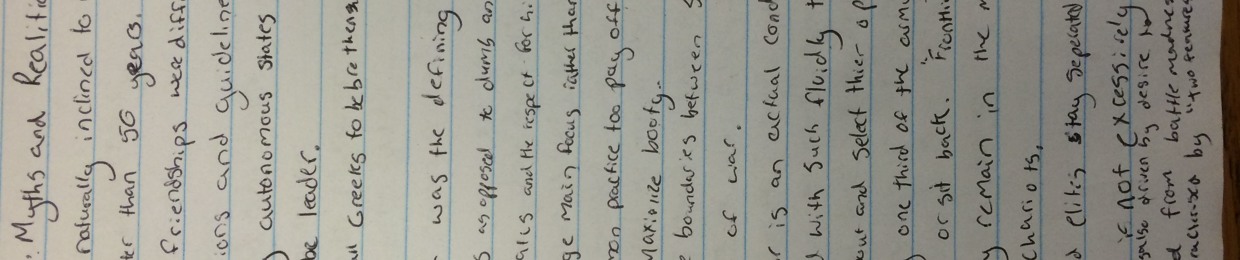 : Myths and Realitic
naturally inclined to
ter than 50 years.
friendships were diff
ions and guideline
autonomous states
be leader.
all Greeks to be
was the defining
as opposed to dumb an
ales and the respect for hi
ge main focus rather than
mon practice too pay off
Maximize booty..
bounderies between S
of war.
r is an actual cond
d with such fluidly t
out and select thier op
one third of the armi
or sit back. "Frontlin
y remain in the m
Chariots,
d elitis stay seperated
if not excessively
also driven by desire to
d from battle madnes
by "two features